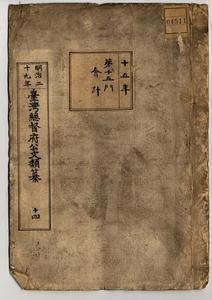 十五年
第十五門
會計
明治二
十九年
臺灣總督府公文類纂
十四